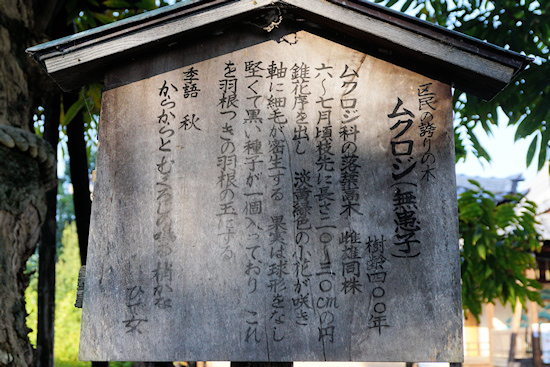 区民の誇りの木
ムクロジ(無患子)
樹齢四〇〇年
ムクロジ科の落葉高木 雌雄同株
六~七月頃枝先に長さ二〇~三〇cmの円
錐花序を出し 淡黄緑色の小花が咲き
軸に細毛が密生する 果実は球形をなし
堅くて黒い種子が一個入っており これ
を羽根つきの羽根の玉にする
季語 秋
からからとむくろじ鳴る 梢かな
ひさ女